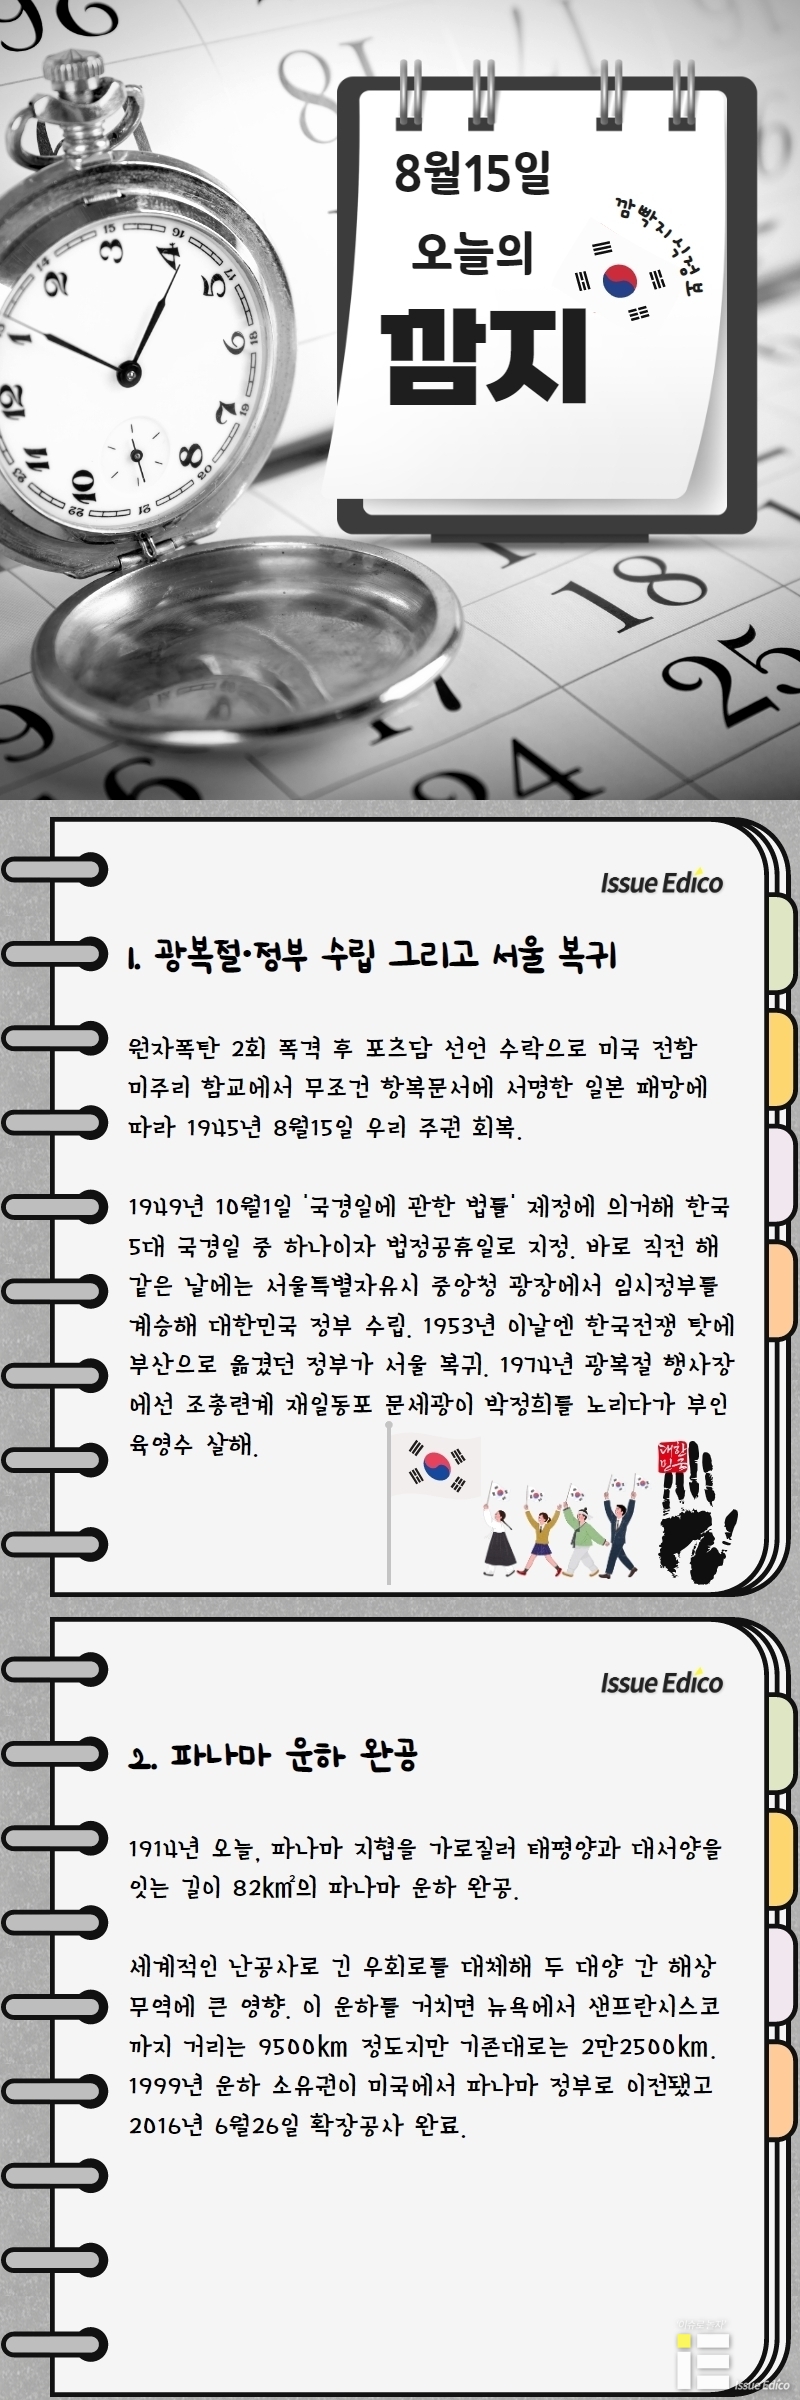 8월15일
깜빡지식정보
오늘의
깜지
Issue Edico
1. 광복절·정부 수립 그리고 서울 복귀
원자폭탄 2회 폭격 후 포츠담 선언 수락으로 미국 전함
미주리 함교에서 무조건 항복문서에 서명한 일본 패망에
따라 1945년 8월15일 우리 주권 회복.
1949년 10월1일 '국경일에 관한 법률' 제정에 의거해 한국
5대 국경일 중 하나이자 법정공휴일로 지정. 바로 직전 해
같은 날에는 서울특별자유시 중앙청 광장에서 임시정부를
계승해 대한민국 정부 수립. 1953년 이날엔 한국전쟁 탓에
부산으로 옮겼던 정부가 서울 복귀. 1974년 광복절 행사장
에선 조총련계 재일동포 문세광이 박정희를 노리다가 부인
육영수 살해.
대한
민국
Issue Edico
2. 파나마 운하 완공
1914년 오늘, 파나마 지협을 가로질러 태평양과 대서양을
잇는 길이 82㎢의 파나마 운하 완공.
세계적인 난공사로 긴 우회로를 대체해 두 대양 간 해상
무역에 큰 영향. 이 운하를 거치면 뉴욕에서 샌프란시스코
까지 거리는 9500km 정도지만 기존대로는 2만2500km.
1999년 운하 소유권이 미국에서 파나마 정부로 이전됐고
2016년 6월26일 확장공사 완료.
iE
Issue Edico